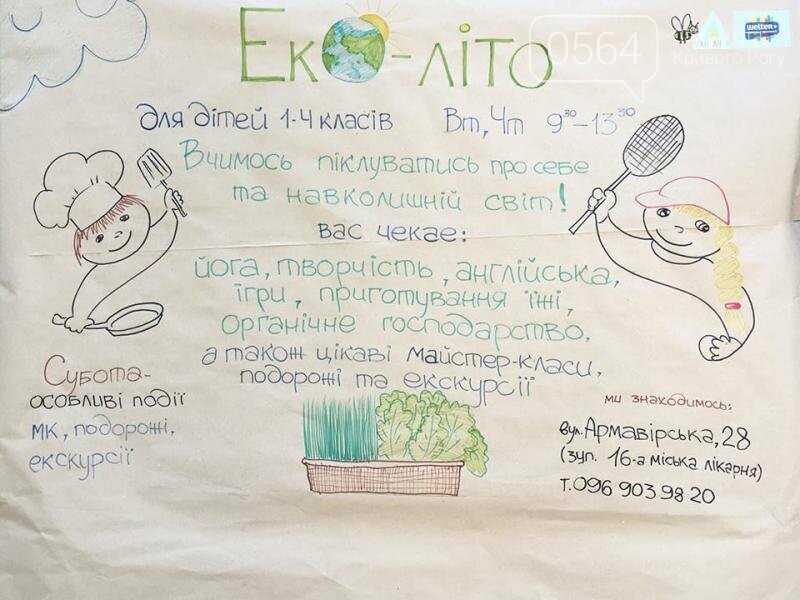 Еко-літо
для дітей 1-4 класів Вт, Чт 9³⁰-13³⁰
Вчимось піклуватись про себе
та навколишній світ!
вас чекає:
йога, творчість, англійська,
ігри, приготування їжі,
органічне господарство,
а також цікаві майстер-класи,
подорожі та екскурсії
Субота-
особливі події
мк, подорожі,
екскурсії
ми знаходимось:
вул. Армавірська, 28
(зуп. 16-а міська лікарня)
т. 096 903 98 20
0564
Кривого Рогу
welter